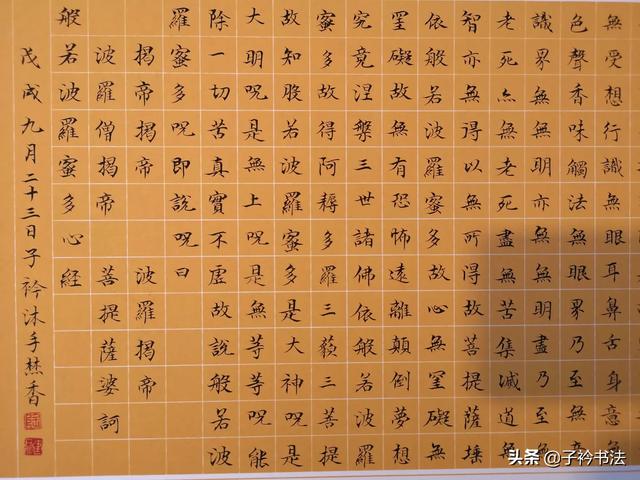 無受想行識無眼耳鼻舌身意無
色聲香味觸法無眼界乃至無意
識界無無明亦無無明盡乃至無
老死亦無老死盡無苦集滅道無
智亦無得以無所得故菩提薩埵
依般若波羅蜜多故心無罣礙無
罣礙故無有恐怖遠離顛倒夢想
究竟涅槃三世諸佛依般若波羅
蜜多故得阿耨多羅三藐三菩提
故知般若波羅蜜多是大神呪是
大明呪是無上呪是無等等呪能
除一切苦真實不虛故說般若波
羅蜜多呪即說呪曰
揭帝揭帝 波羅揭帝
波羅僧揭帝 菩提薩婆訶
般若波羅蜜多心経
戊戌九月二十三日子衿沐手焚香
头条 @子衿书法